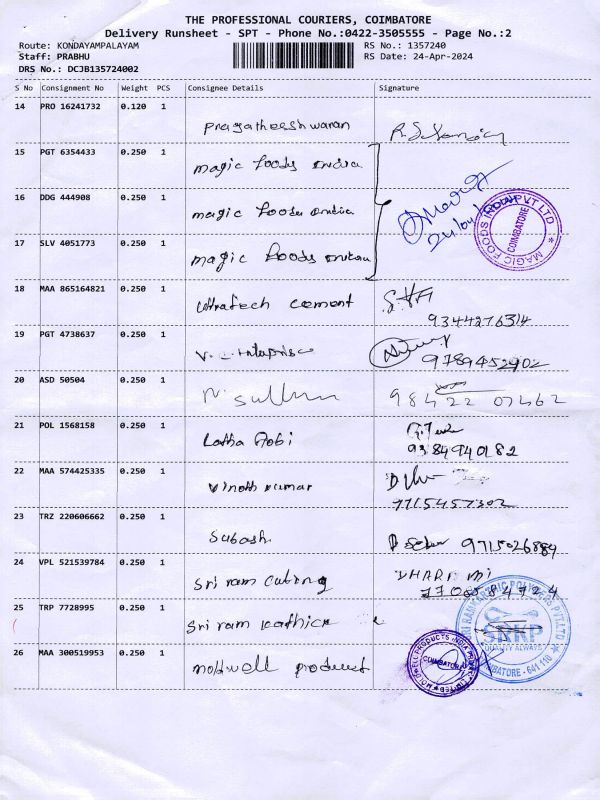 THE PROFESSIONAL COURIERS, COIMBATORE
Delivery Runsheet - SPT - Phone No.:0422-3505555 - Page No.:2
Route: KONDAYAMPALAYAM
Staff: PRABHU
DRS No.: DCJB135724002
RS No.: 1357240
RS Date: 24-Apr-2024
S No Consignment No Weight PCS Consignee Details Signature
14 PRO 16241732 0.120 1
Pragatheeshwaran
15 PGT 6354433 0.250 1
magic foods India
16 DDG 444908 0.250 1
magic foods India
MAGIC FOODS INDIA PVT LTD
COIMBATORE
17 SLV 4051773 0.250 1
magic foods India
18 MAA 865164821 0.250 1
ultratech cement
9344276314
19 PGT 4738637 0.250 1
V.
9789452902
20 ASD 50504 0.250 1
98422 07462
21 POL 1568158 0.250 1
Latha Gobi
9384940182
22 MAA 574425335 0.250 1
Vinoth kumar
7715457302
23 TRZ 220606662 0.250 1
Subash
9715026884
24 VPL 521539784 0.250 1
Sri ram cuting
25 TRP 7728995 0.250 1
Sri ram
SRKP
QUALITY ALWAYS
COIMBATORE - 641 110
26 MAA 300519953 0.250 1
moldwell product
MOLDWELL PRODUCTS INDIA PRIVATE LIMITED
COIMBATORE